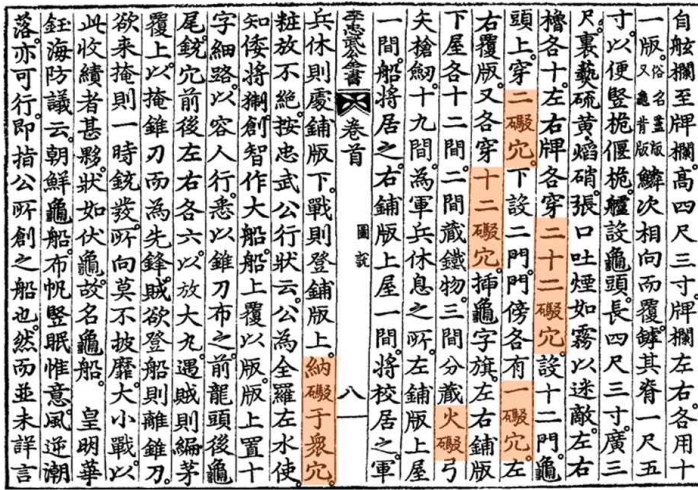 自舷欄至牌欄高四尺三寸牌欄左右各用十
一版俗名蓋版又龜背版鱗次相向而覆罅其脊一尺五
寸以便竪桅偃桅艫設龜頭長四尺三寸廣三
尺裏爇硫黃焰硝張口吐煙如霧以迷敵左右
櫓各十左右牌各穿二十二礮穴設十二門龜
頭上穿二礮穴下設二門門傍各有一礮穴左
右覆版又各穿十二礮穴揷龜字旗左右鋪版
下屋各十二間二間藏鐵物三間分藏火礮弓
矢槍劒十九間為軍兵休息之所左鋪版上屋
一間船將居之右鋪版上屋一間將校居之軍
李忠武公全書 卷首 圖說 八
兵休則處鋪版下戰則登鋪版上納礮于衆穴
粧放不絶按忠武公行狀云公為全羅左水使
知倭將猘創智作大船船上覆以版版上置十
字細路以容人行悉以錐刀布之前龍頭後龜
尾銃穴前後左右各六以放大丸遇賊則編茅
覆上以掩錐刀而為先鋒賊欲登船則離錐刀
欲来掩則一時銃發所向莫不披靡大小戰以
此收績者甚夥狀如伏龜故名龜船 皇明華
鈺海防議云朝鮮龜船布帆竪眠惟意風逆潮
落亦可行即指公所創之船也然而並未詳言